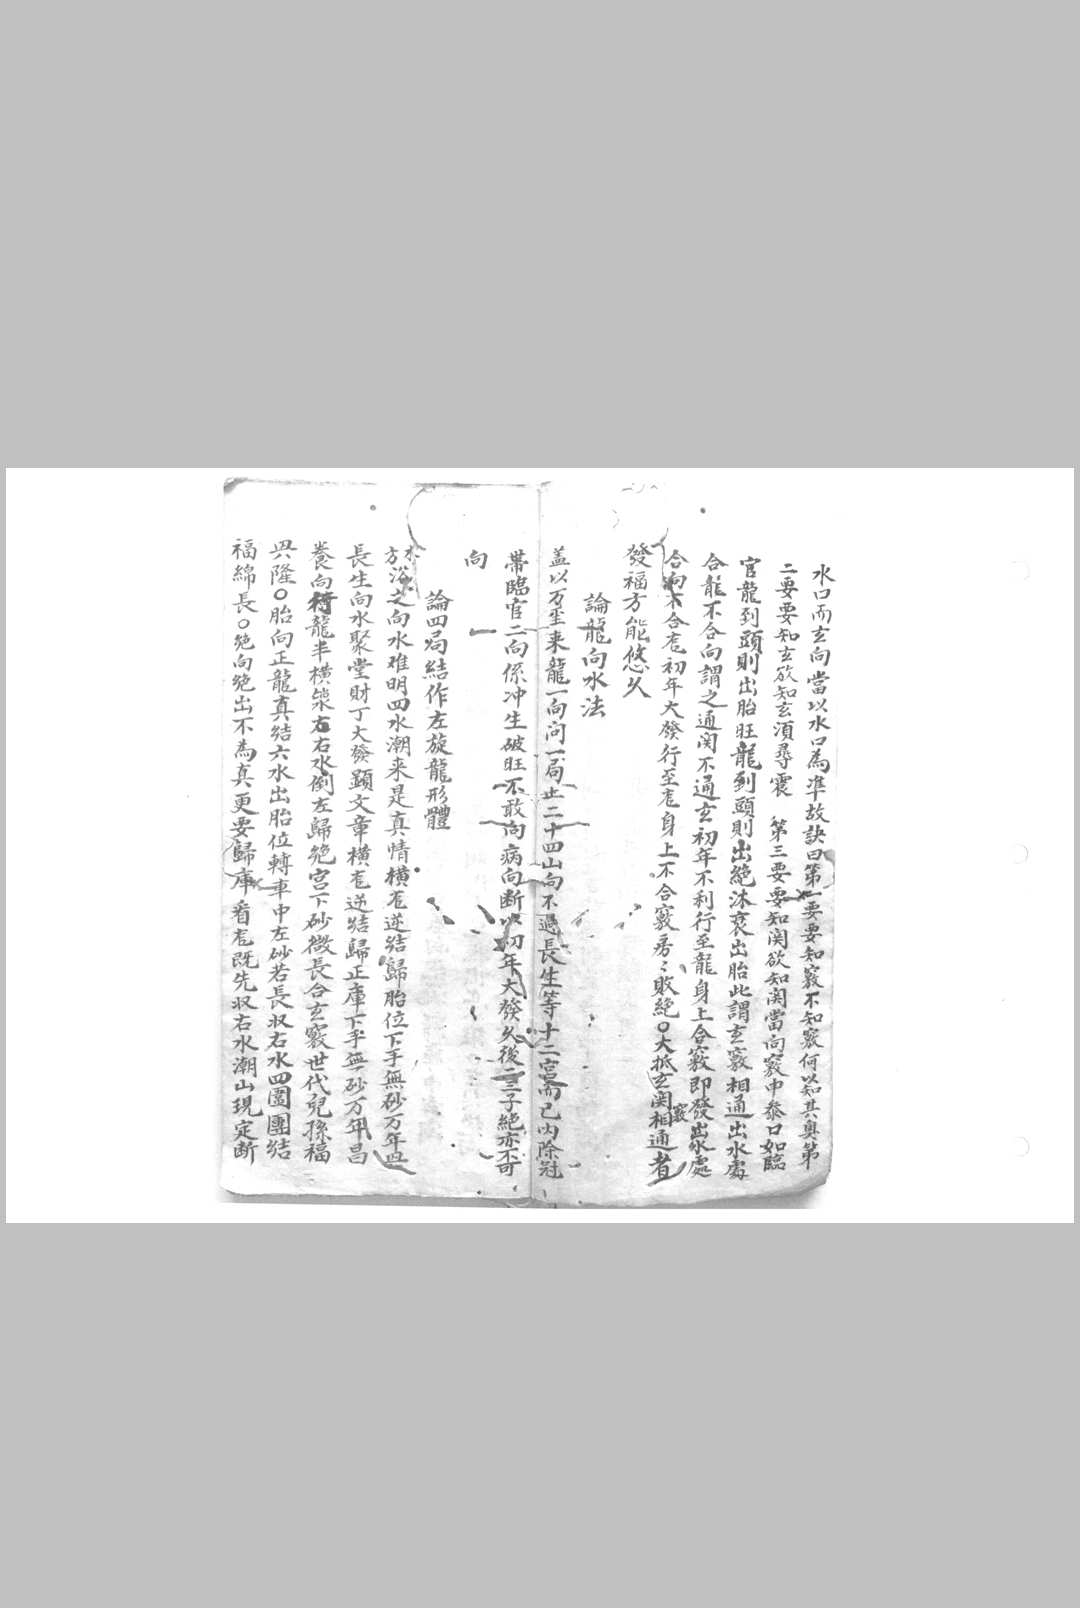 水口而玄向當以水口為準故訣曰第一要要知竅不知竅何以知其奧第
二要要知玄欲知玄須尋震　第三要要知関欲知関當向竅中參口如臨
官龍到頭則出胎旺龍到頭則出絶沐衰出胎此謂玄竅相通出水處
合龍不合向謂之通関不通玄初年不利行至龍身上合竅即發出水處
合向不合龙初年大發行至龙身上不合竅房〻敗絶○大抵玄関竅相通者
發福方能悠久
論龍向水法
盖以万里来龍一向問一局止二十四山向不過長生等十二宮而已内除冠
帶臨官二向係冲生破旺不敢向病向断以初年大發久後二三子絶亦不可
向
論四局結作左旋龍形體
水方浴之向水难明四水潮来是真情横龙逆结歸胎位下手無砂万年興
長生向水聚堂財丁大發顕文章横龙逆結歸正庫下手無砂万年昌
養向龍半横右右水倒左歸絶宫下砂微長合玄竅世代兒孫福
興隆○胎向正龍真結六水出胎位轉車中左砂若長収右水四圍團结
福綿長○绝向绝出不為真更要歸庫看龙既先収右水潮山現定断